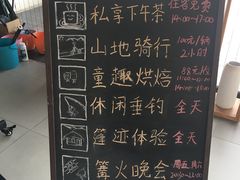 私享下午茶 住客免票
14:00~17:00
山地骑行 100元/辆
2小时
童趣烘焙 88元/位
休闲垂钓 全天
篷迹体验 全天
篝火晚会 周五、周六
20:30~21:00